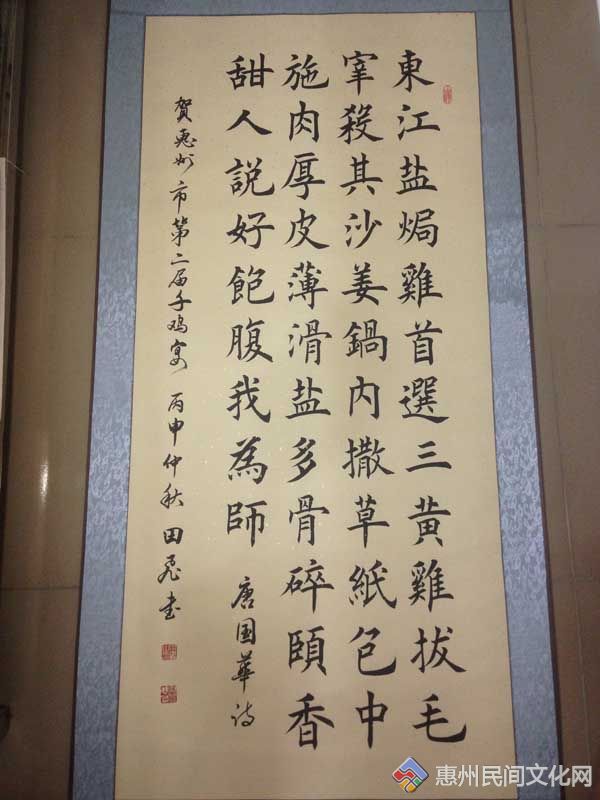 東江盐焗雞首選三黄雞拔毛
宰殺其沙姜鍋内撒草紙包中
施肉厚皮薄滑盐多骨碎頤香
甜人説好飽腹我為師
唐国華诗
賀惠州市第二届千鸡宴 丙申仲秋 田飛书
惠州民间文化网